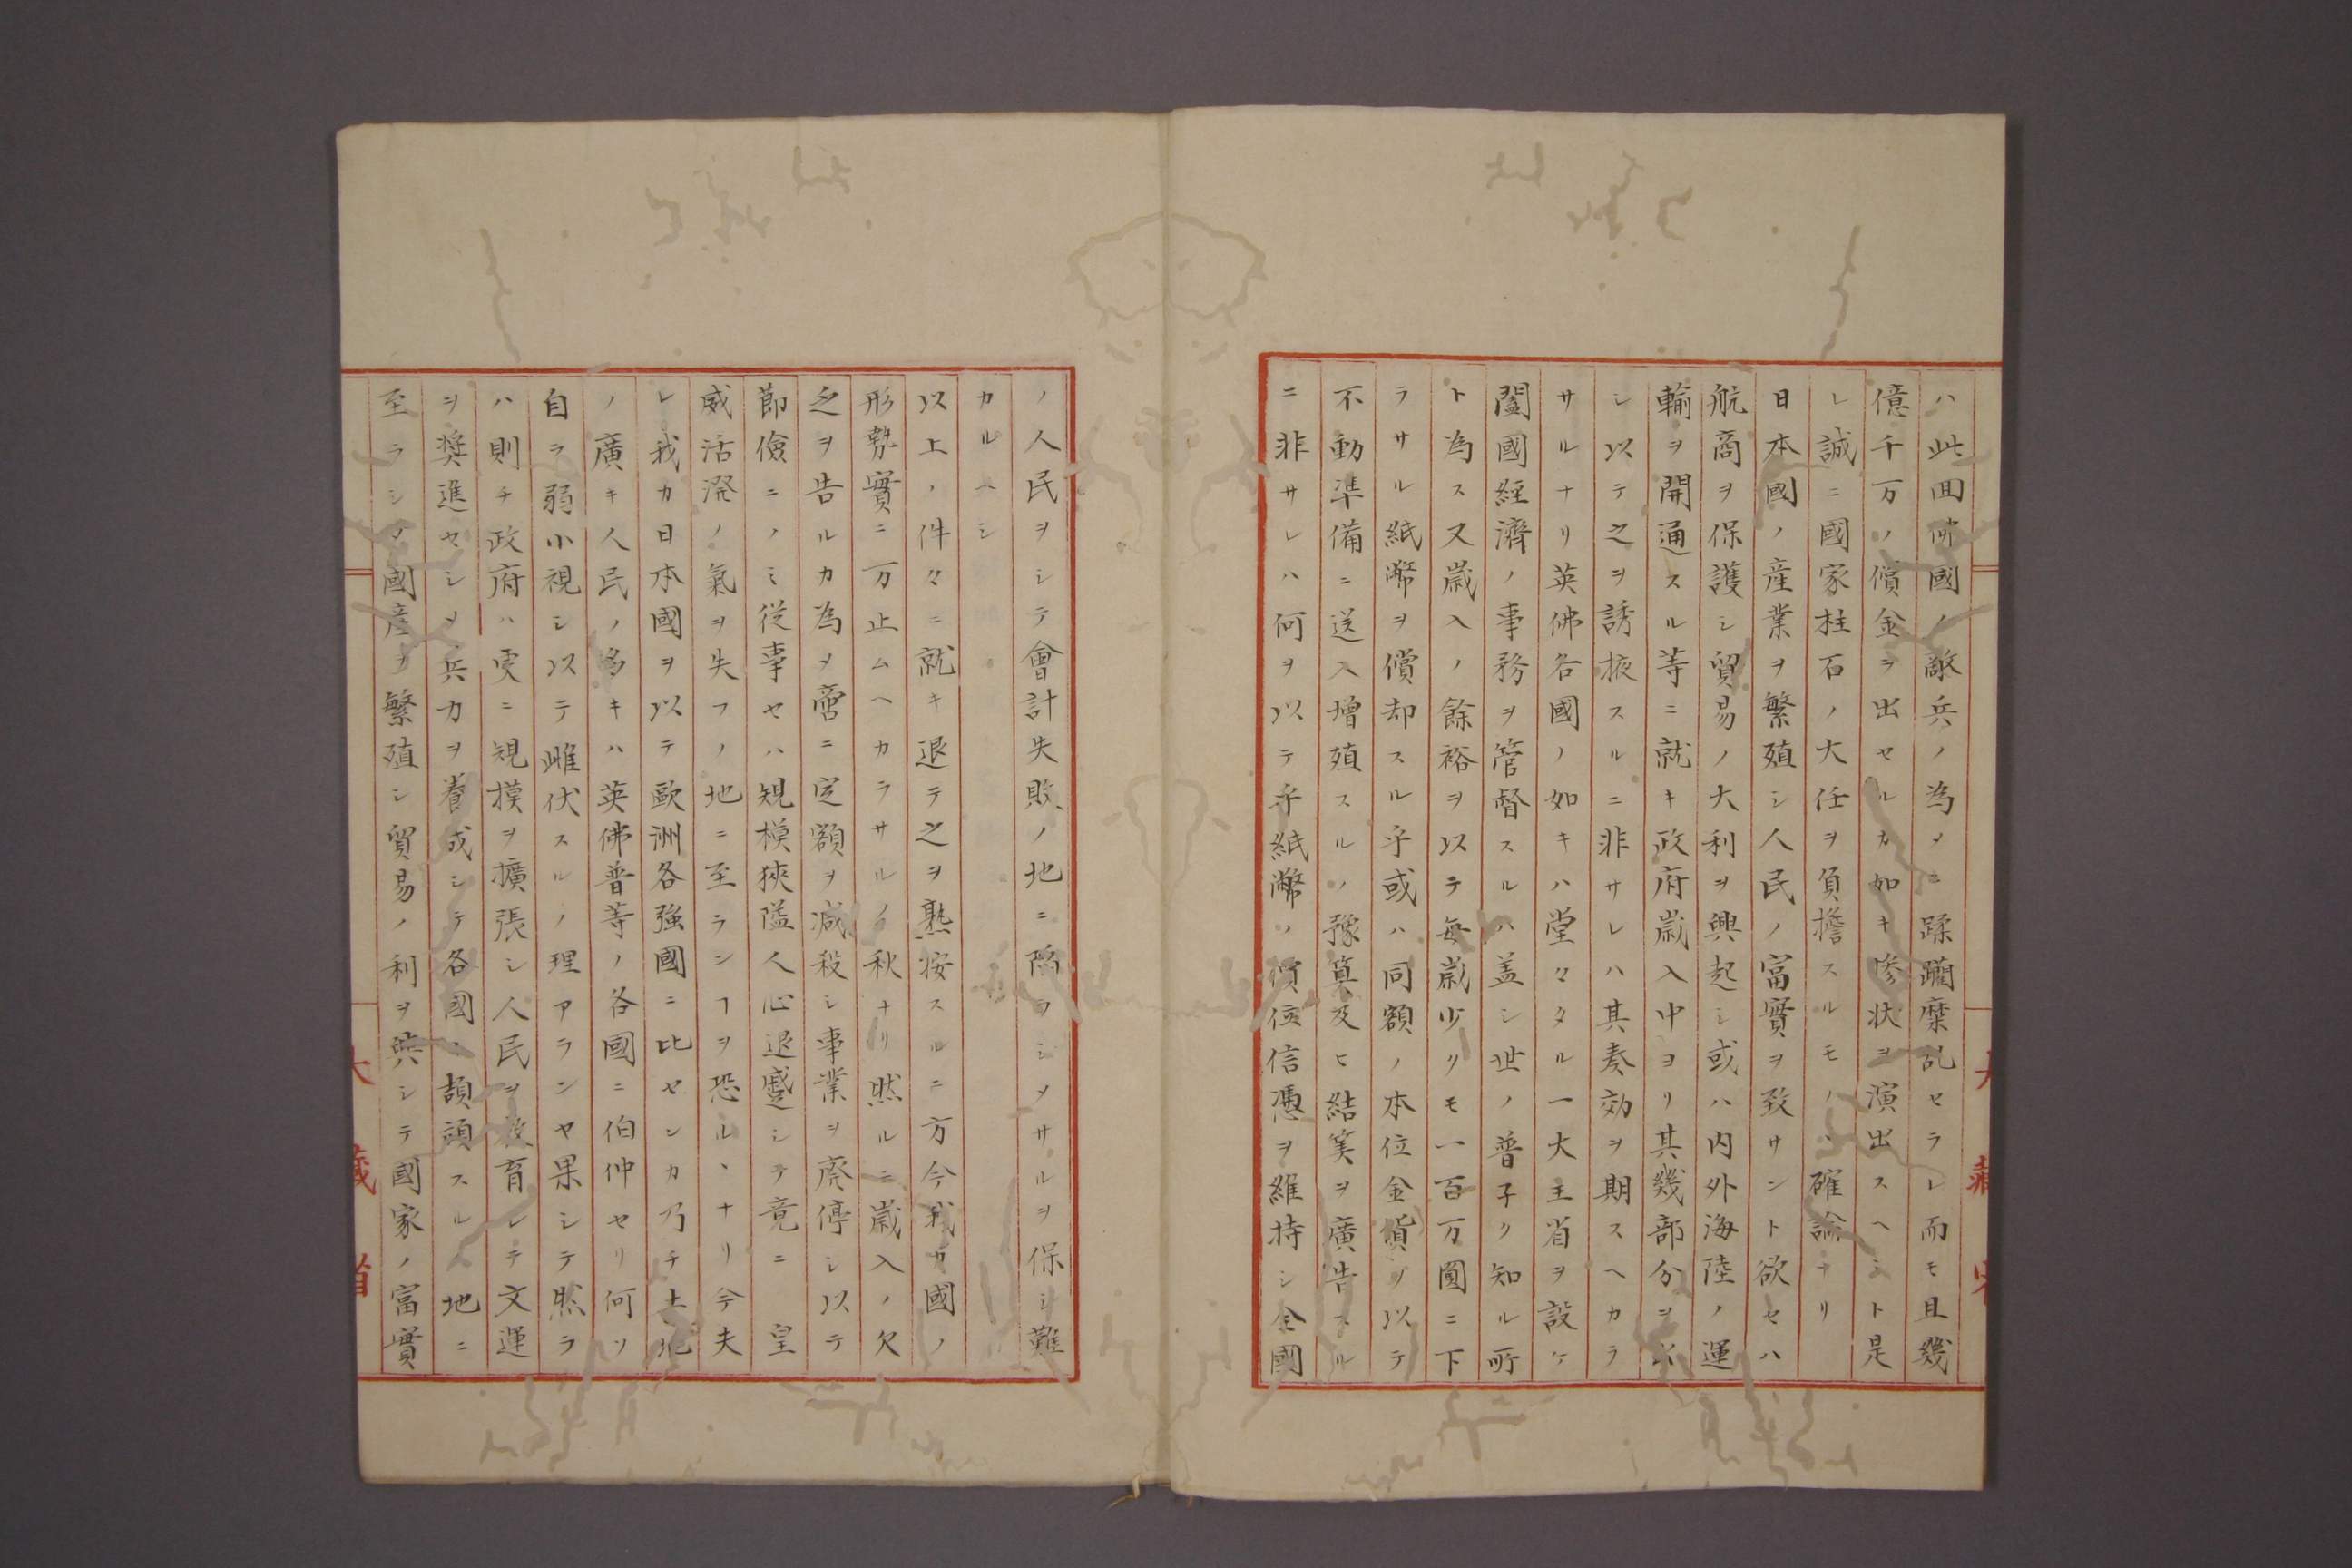 ハ此回所國ノ敵兵ノ為メニ蹂躪糜乱セラレ而モ且幾
億千万ノ償金ヲ出セルカ如キ惨状ヲ演出スヘシト是
レ誠ニ國家柱石ノ大任ヲ負擔スルモノヽ確論ナリ
日本國ノ産業ヲ繁殖シ人民ノ富實ヲ致サント欲セハ
航商ヲ保護シ貿易ノ大利ヲ興起シ或ハ内外海陸ノ運
輸ヲ開通スル等ニ就キ政府歳入中ヨリ其幾部分ヲ
シ以テ之ヲ誘掖スルニ非サレハ其奏効ヲ期スヘカラ
サルナリ英佛各國ノ如キハ堂々タル一大主省ヲ設ケ
闔國經濟ノ事務ヲ管督スルハ盖シ世ノ普子ク知ル所
ト為ス又歳入ノ餘裕ヲ以テ毎歳少リモ一百万圓ニ下
ラサル紙幣ヲ償却スル乎或ハ同額ノ本位金貨ヲ以テ
不動準備ニ送入増殖スルノ豫算及ヒ結筭ヲ廣告スル
ニ非サレハ何ヲ以テ乎紙幣ノ價位信憑ヲ維持シ全國
ノ人民ヲシテ會計失敗ノ地ニ陥ヲシメサルヲ保シ難
カルヘシ
以上ノ件々ニ就キ退テ之ヲ熟按スルニ方今我カ國ノ
形勢實ニ万止ムヘカラサルノ秋ナリ然ルニ歳入ノ欠
乏ヲ告ルカ為メ啻ニ定額ヲ减殺シ事業ヲ廃停シ以テ
節儉ニノミ從事セハ規模狹隘人心退蹙シテ竟ニ　皇
威活溌ノ氣ヲ失フノ地ニ至ランヿヲ恐ルヽナリ今夫
レ我カ日本國ヲ以テ歐洲各強國ニ比センカ乃チ土地
ノ廣キ人民ノ多キハ英佛普等ノ各國ニ伯仲セリ何ソ
自ラ弱小視シ以テ雌伏スルノ理アランヤ果シテ然ラ
ハ則チ政府ハ更ニ規摸ヲ擴張シ人民ヲ教育シテ文運
ヲ奨進セシメ兵力ヲ養成シテ各國ニ頡頏スルノ地ニ
至ラシメ國産ヲ繁殖シ貿易ノ利ヲ興シテ國家ノ富實
大藏省